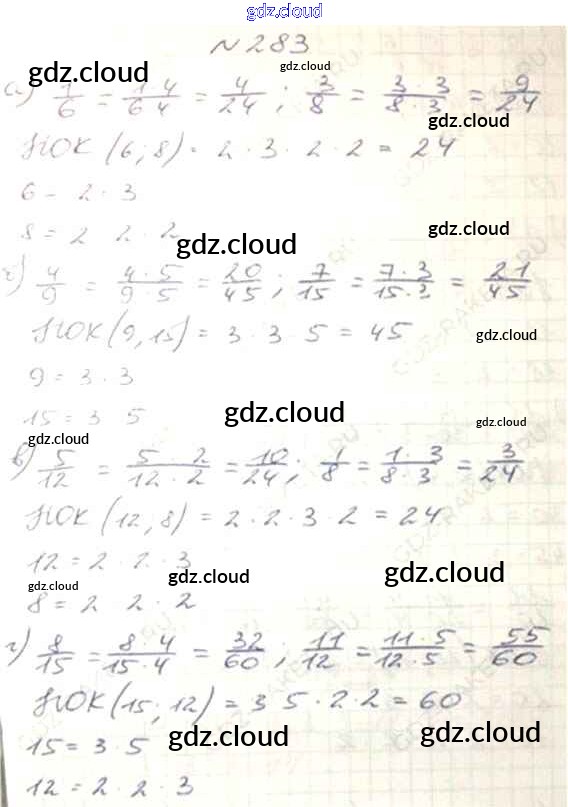 gdz.cloud
№ 283
gdz.cloud gdz.cloud
а) 1/6 = 1·4/6·4 = 4/24 ; 3/8 = 3·3/8·3 = 9/24
gdz.cloud
НОК (6; 8) = 2 · 3 · 2 · 2 = 24
6 = 2 · 3
8 = 2 2 2
gdz.cloud gdz.cloud
4/9 = 4·5/9·5 = 20/45 ; 7/15 = 7·3/15·3 = 21/45
НОК (9, 15) = 3 · 3 · 5 = 45
gdz.cloud
9 = 3 · 3
15 = 3 5
gdz.cloud gdz.cloud
gdz.cloud
в) 5/12 = 5·2/12·2 = 10/24 ; 1/8 = 1·3/8·3 = 3/24
НОК (12, 8) = 2 · 2 · 3 · 2 = 24
12 = 2 · 2 · 3
gdz.cloud gdz.cloud gdz.cloud
8 = 2 2 · 2
г) 8/15 = 8·4/15·4 = 32/60 ; 11/12 = 11·5/12·5 = 55/60
НОК (15; 12) = 3 5 · 2 · 2 = 60
15 = 3 · 5
gdz.cloud gdz.cloud
12 = 2 · 2 · 3